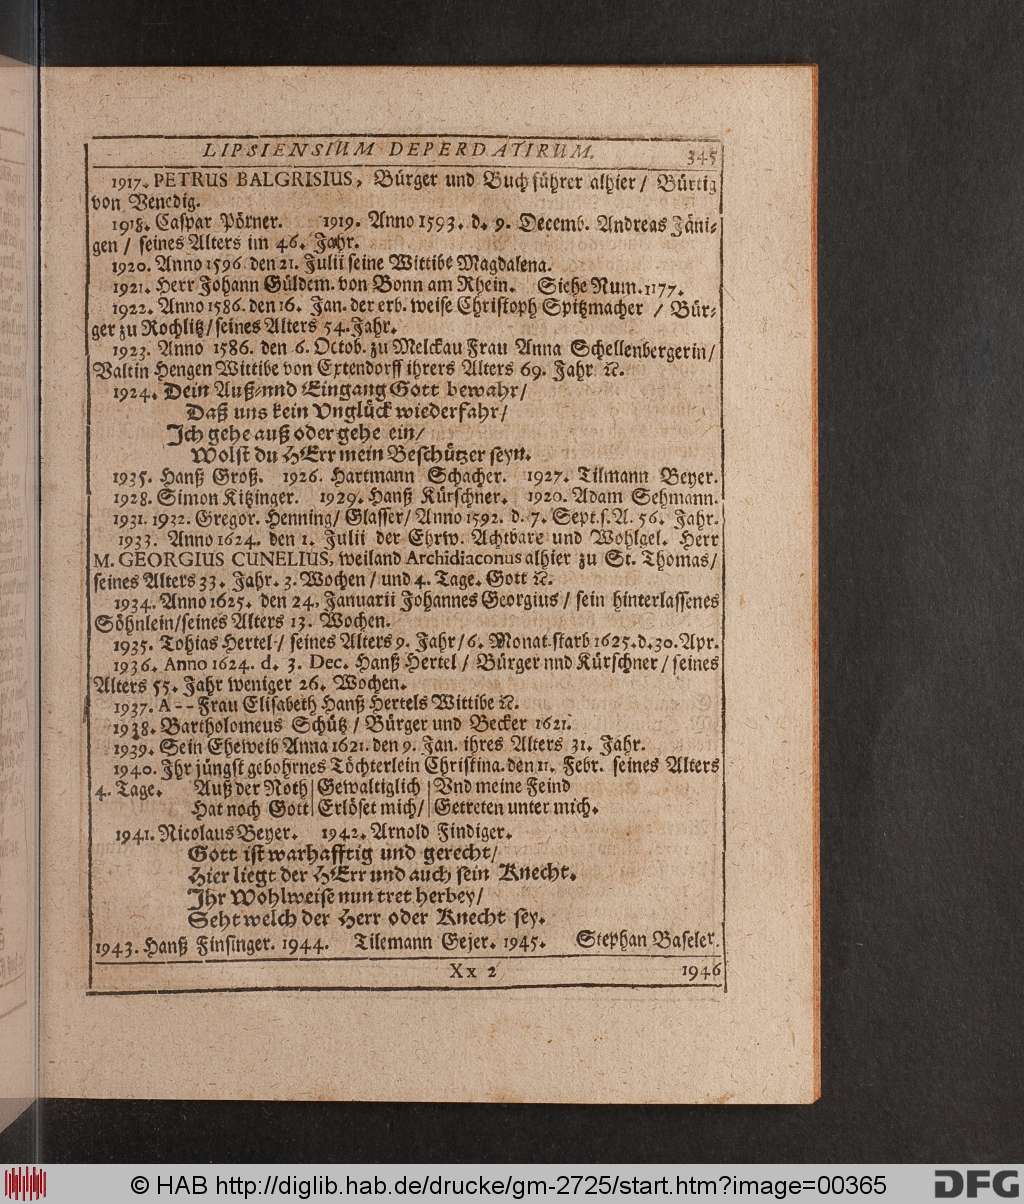 LIPSIENSIUM DEPERDATIRUM. 345
1917. PETRUS BALGRISIUS, Bürger und Buchführer alhier / Bürtig
von Venedig.
1918. Caspar Pörner. 1919. Anno 1593. d. 9. Decemb. Andreas Jäni-
gen / seines Alters im 46. Jahr.
1920. Anno 1596 den 21. Julii seine Wittibe Magdalena.
1921. Herr Johann Güldem. von Bonn am Rhein. Siehe Num. 1177.
1922. Anno 1586. den 16. Jan. der erb. weise Christoph Spitzmacher / Bür-
ger zu Rochlitz / seines Alters 54. Jahr.
1923. Anno 1586. den 6. Octob. zu Melckau Frau Anna Schellenbergerin /
Valtin Hengen Wittibe von Extendorff ihrers Alters 69. Jahr ꝛc.
1924. Dein Auß-nnd Eingang Gott bewahr /
Daß uns kein Vnglück wiederfahr /
Ich gehe auß oder gehe ein /
Wolst du HErr mein Beschützer seyn.
1935. Hanß Groß. 1926. Hartmann Schacher. 1927. Tilmann Beyer.
1928. Simon Kitzinger. 1929. Hanß Kürschner. 1920. Adam Sehmann.
1931. 1932. Gregor. Henning / Glasser / Anno 1592. d. 7. Sept. s. A. 56. Jahr.
1933. Anno 1624. den 1. Julii der Ehrw. Achtbare und Wohlgel. Herr
M. GEORGIUS CUNELIUS, weiland Archidiaconus alhier zu St. Thomas /
seines Alters 33. Jahr. 3. Wochen / und 4. Tage. Gott ꝛc.
1934. Anno 1625. den 24. Januarii Johannes Georgius / sein hinterlassenes
Söhnlein / seines Alters 13. Wochen.
1935. Tohias Hertel / seines Alters 9. Jahr / 6. Monat. starb 1625. d. 30. Apr.
1936. Anno 1624. d. 3. Dec. Hanß Hertel / Bürger nnd Kürschner / seines
Alters 55. Jahr weniger 26. Wochen.
1937. A - - Frau Elisabeth Hanß Hertels Wittibe ꝛc.
1938. Bartholomeus Schütz / Bürger und Becker 1621.
1939. Sein Eheweib Anna 1621. den 9. Jan. ihres Alters 31. Jahr.
1940. Ihr jüngst gebohrnes Töchterlein Christina. den 11. Febr. seines Alters
4. Tage. Auß der Noth | Gewaltiglich | Vnd meine Feind
Hat noch Gott | Erlöset mich / | Getreten unter mich.
1941. Nicolaus Beyer. 1942. Arnold Findiger.
Gott ist warhafftig und gerecht /
Hier liegt der HErr und auch sein Knecht.
Ihr Wohlweise nun tret herbey /
Seht welch der Herr oder Knecht sey.
1943. Hanß Finsinger. 1944. Tilemann Gejer. 1945. Stephan Baseler.
Xx 2 1946
© HAB http://diglib.hab.de/drucke/gm-2725/start.htm?image=00365
DFG